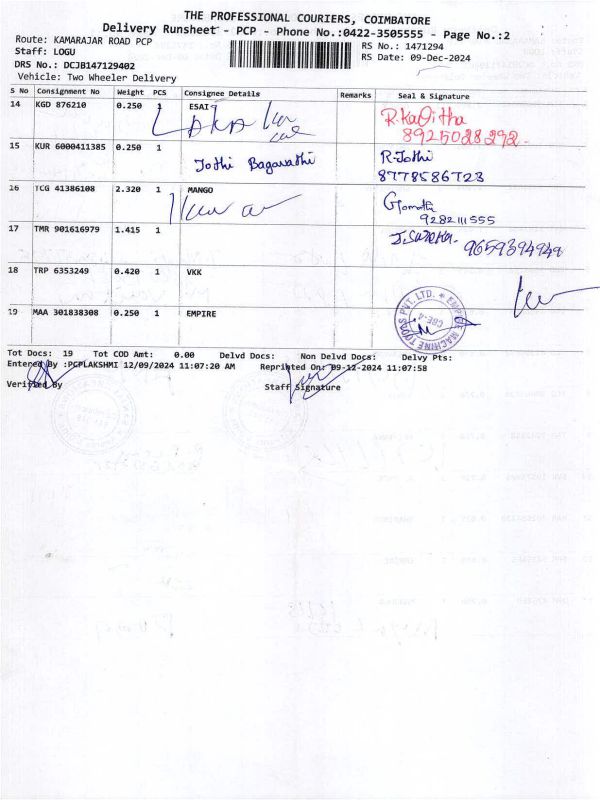 THE PROFESSIONAL COURIERS, COIMBATORE
Delivery Runsheet - PCP - Phone No.:0422-3505555 - Page No.:2
Route: KAMARAJAR ROAD PCP
RS No.: 1471294
Staff: LOGU
RS Date: 09-Dec-2024
DRS No.: DCJB147129402
Vehicle: Two Wheeler Delivery
S No Consignment No Weight PCS Consignee Details Remarks Seal & Signature
14 KGD 876210 0.250 1 ESAI R.Kavitha
8925028292.
15 KUR 6000411385 0.250 1 Jothi Bagavathi R-Jothi
8778586723
16 TCG 41386108 2.320 1 MANGO Gomathi
9282111555
17 TMR 901616979 1.415 1 9659394948
18 TRP 6353249 0.420 1 VKK
19 MAA 301838308 0.250 1 EMPIRE EMPIRE MACHINE TOOLS PVT. LTD. CBE-4
Tot Docs: 19 Tot COD Amt: 0.00 Delvd Docs: Non Delvd Docs: Delvy Pts:
Entered By :PCPLAKSHMI 12/09/2024 11:07:20 AM Reprinted On: 09-12-2024 11:07:58
Verified By Staff Signature